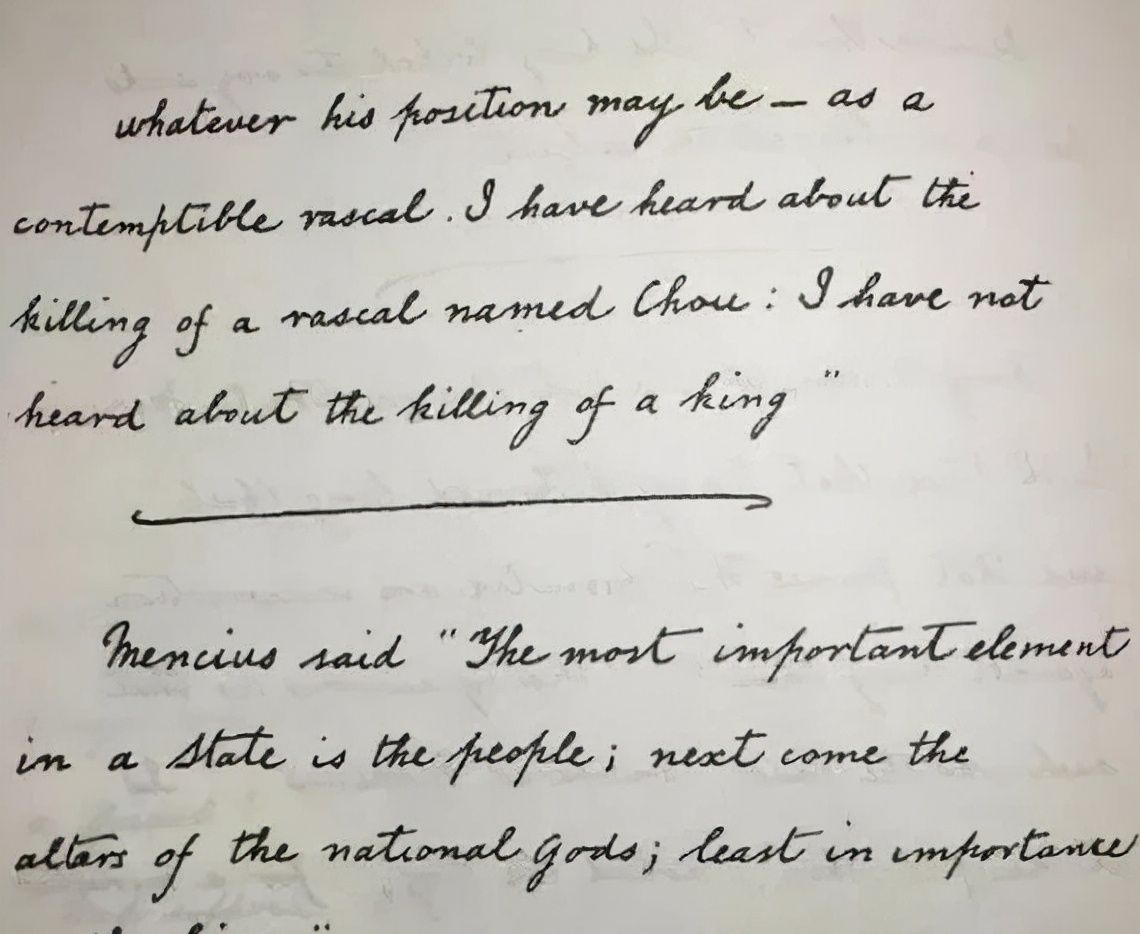 whatever his position may be – as a
contemptible rascal. I have heard about the
killing of a rascal named Chou: I have not
heard about the killing of a king"
Mencius said "The most important element
in a State is the people; next come the
altars of the national Gods; least in importance